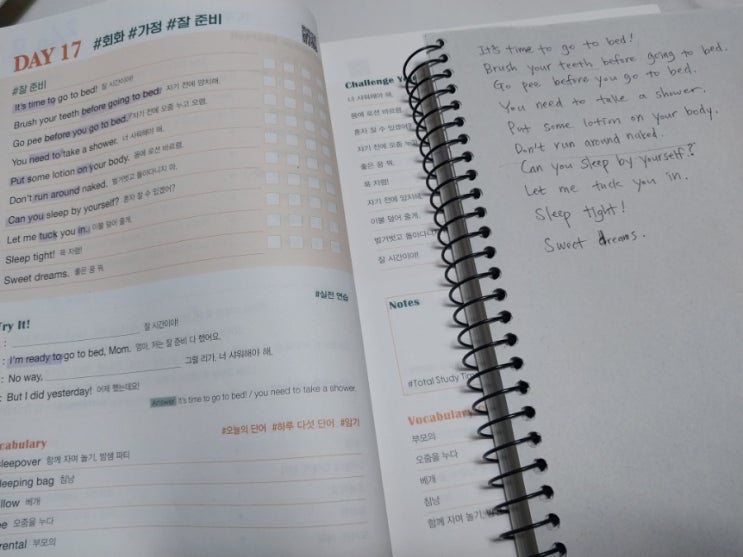 DAY 17 #회화 #가정 #잘 준비
#잘 준비
It's time to go to bed! 잘 시간이야!
Brush your teeth before going to bed! 자기 전에 양치해.
Go pee before you go to bed. 자기 전에 오줌 누고 오렴.
You need to take a shower. 너 샤워해야 해.
Put some lotion on your body. 몸에 로션 바르렴.
Don't run around naked. 벌거벗고 돌아다니지 마.
Can you sleep by yourself? 혼자 잘 수 있겠어?
Let me tuck you in. 이불 덮어 줄게.
Sleep tight! 푹 자렴!
Sweet dreams. 좋은 꿈 꿔.
#실전 연습
Try It!
: 잘 시간이야!
: I'm ready to go to bed, Mom. 엄마, 저는 잘 준비 다 했어요.
: No way, 그럴 리가. 너 샤워해야 해.
: But I did yesterday! 어제 했는데요!
Answer It's time to go to bed! / you need to take a shower.
cabulary #오늘의 단어 #하루 다섯 단어 #암기
leepover 함께 자며 놀기, 밤샘 파티
leeping bag 침낭
llow 베개
ee 오줌을 누다
rental 부모의
Challenge
너 샤워해야 해.
몸에 로션 바르렴.
혼자 잘 수 있겠어?
자기 전에 오줌 누
좋은 꿈 꿔.
푹 자렴!
자기 전에 양치해
이불 덮어 줄게.
벌거벗고 돌아다니
잘 시간이야!
Notes
#Total Study Tim
Vocabulary
부모의
오줌을 누다
베개
침낭
함께 자며 놀기,
It's time to go to bed!
Brush your teeth before going to bed.
Go pee before you go to bed.
You need to take a shower.
Put some lotion on your body.
Don't run around naked.
Can you sleep by yourself?
Let me tuck you in.
Sleep tight!
Sweet dreams.